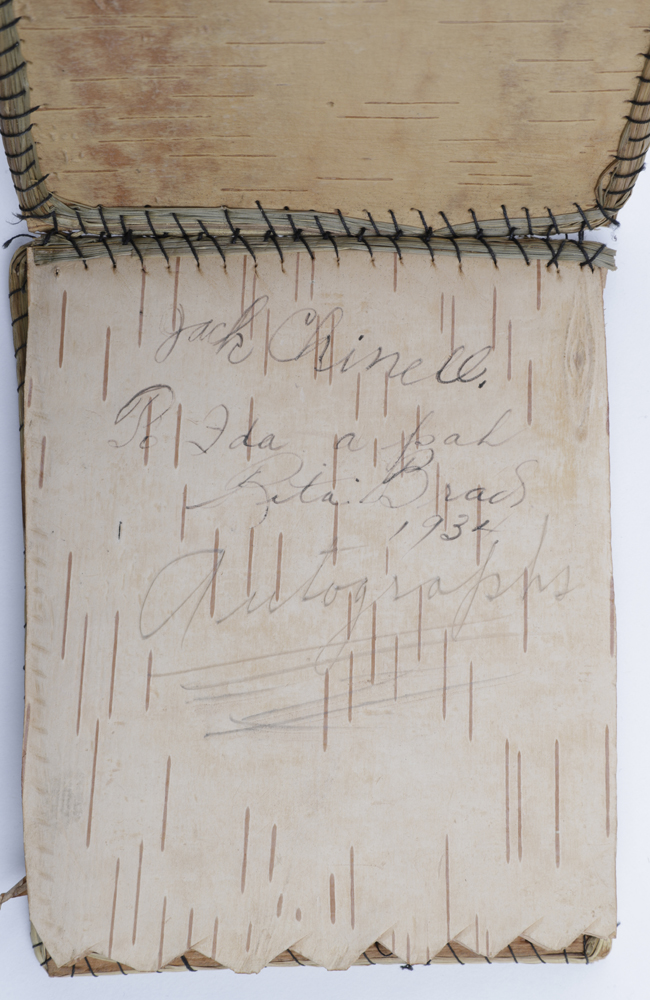 Jack Chinell.
To Ida a pal
Rita: Brad
1934
Autographs